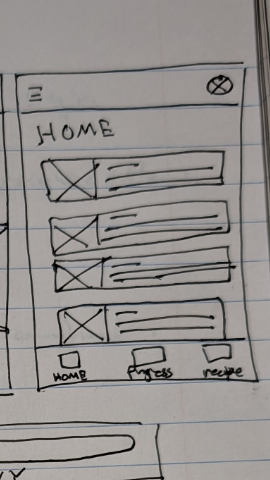 HOME
HOME Progress recipe